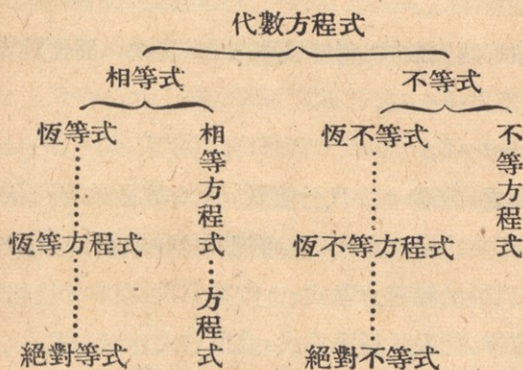 代數方程式
相等式
不等式
恆等式
相等方程式
恆不等式
不等方程式
恆等方程式
恆不等方程式
方程式
絕對等式
絕對不等式